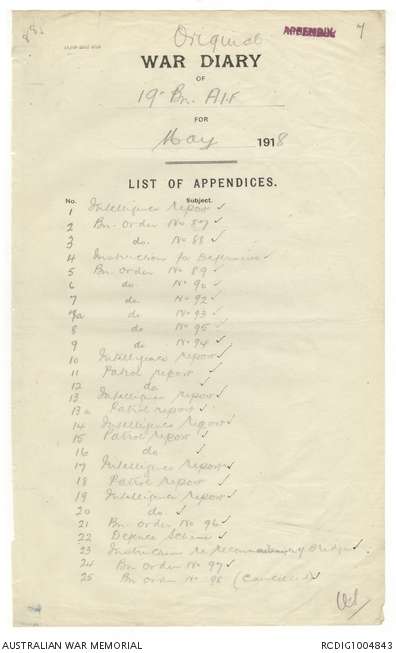 Original
APPENDIX
4
WAR DIARY
OF
19th Bn. A.I.F
FOR
May 1918
LIST OF APPENDICES.
No. Subject.
1 Intelligence report ✓
2 Bn. Order No 87 ✓
3 do. No 88 ✓
4 Instructions for Defensive ✓
5 Bn Order No 89 ✓
6 do. No 90 ✓
7 do No 92 ✓
7a do No 93 ✓
8 do No 95 ✓
9 do No 94 ✓
10 Intelligence report ✓
11 Patrol report ✓
12 do ✓
13 Intelligence report ✓
13a Patrol report ✓
14 Intelligence report ✓
15 Patrol report ✓
16 do ✓
17 Intelligence report ✓
18 Patrol report ✓
19 Intelligence report ✓
20 do ✓
21 Bn Order No 96 ✓
22 Defence Scheme ✓
23 Instructions re reconnaissance of Bridges ✓
24 Bn Order No 97 ✓
25 Bn Order No 98 (Cancelled) ✓
AUSTRALIAN WAR MEMORIAL
RCDIG1004843